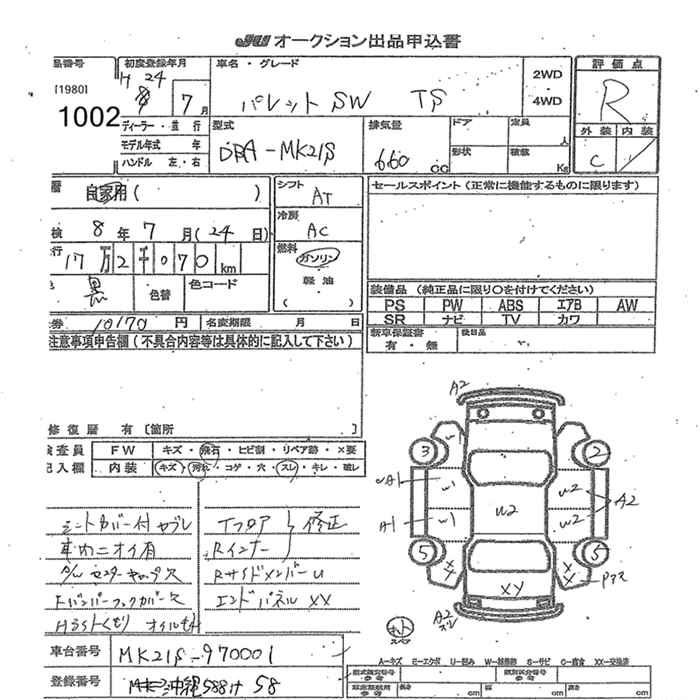 JU オークション出品申込書
品番号
[1980]
1002
初度登録年月
H 24
7月
ディーラー・並行
モデル年式 年
ハンドル 左・右
車名・グレード
パレット SW TS
2WD
・
4WD
型式
DBA-MK21S
排気量
660 CC
ドア
定員
人
形状
積載
Kg
評価点
R
外装 内装
C
歴
自家用( )
検 8年7月(24日)
行
17万2千070km
色 黒
色替
色コード
シフト
AT
冷房
AC
燃料
ガソリン
・
軽油
( )
セールスポイント(正常に機能するものに限ります)
装備品(純正品に限り○を付けてください)
PS PW ABS エアB AW
SR ナビ TV カワ
券 10170円 名変期限 月 日
新車保証書
有・無
後日品
注意事項申告欄(不具合内容等は具体的に記入して下さい)
修復歴 有〔箇所
検査員 FW キズ・飛石・ヒビ割・リペア跡・×要
記入欄 内装 キズ・汚れ・コゲ・穴・スレ・キレ・破レ
シートカバー付 ヤブレ
車内ニオイ有
A/W センターキャップ欠
Fバンパーフックカバー欠
Tフロア
Rインナー
修正
RサイドメンバーU
エンドパネル XX
A2
3
2
A1
W1
W2
A2
A1
W1
U2
W2
5
5
XY
A2
車台番号 MK21S-970001
登録番号 沖縄 58
A-キズ E-エクボ U-凹み W-補修跡 S-サビ C-腐食 XX-交換済
cm cm cm